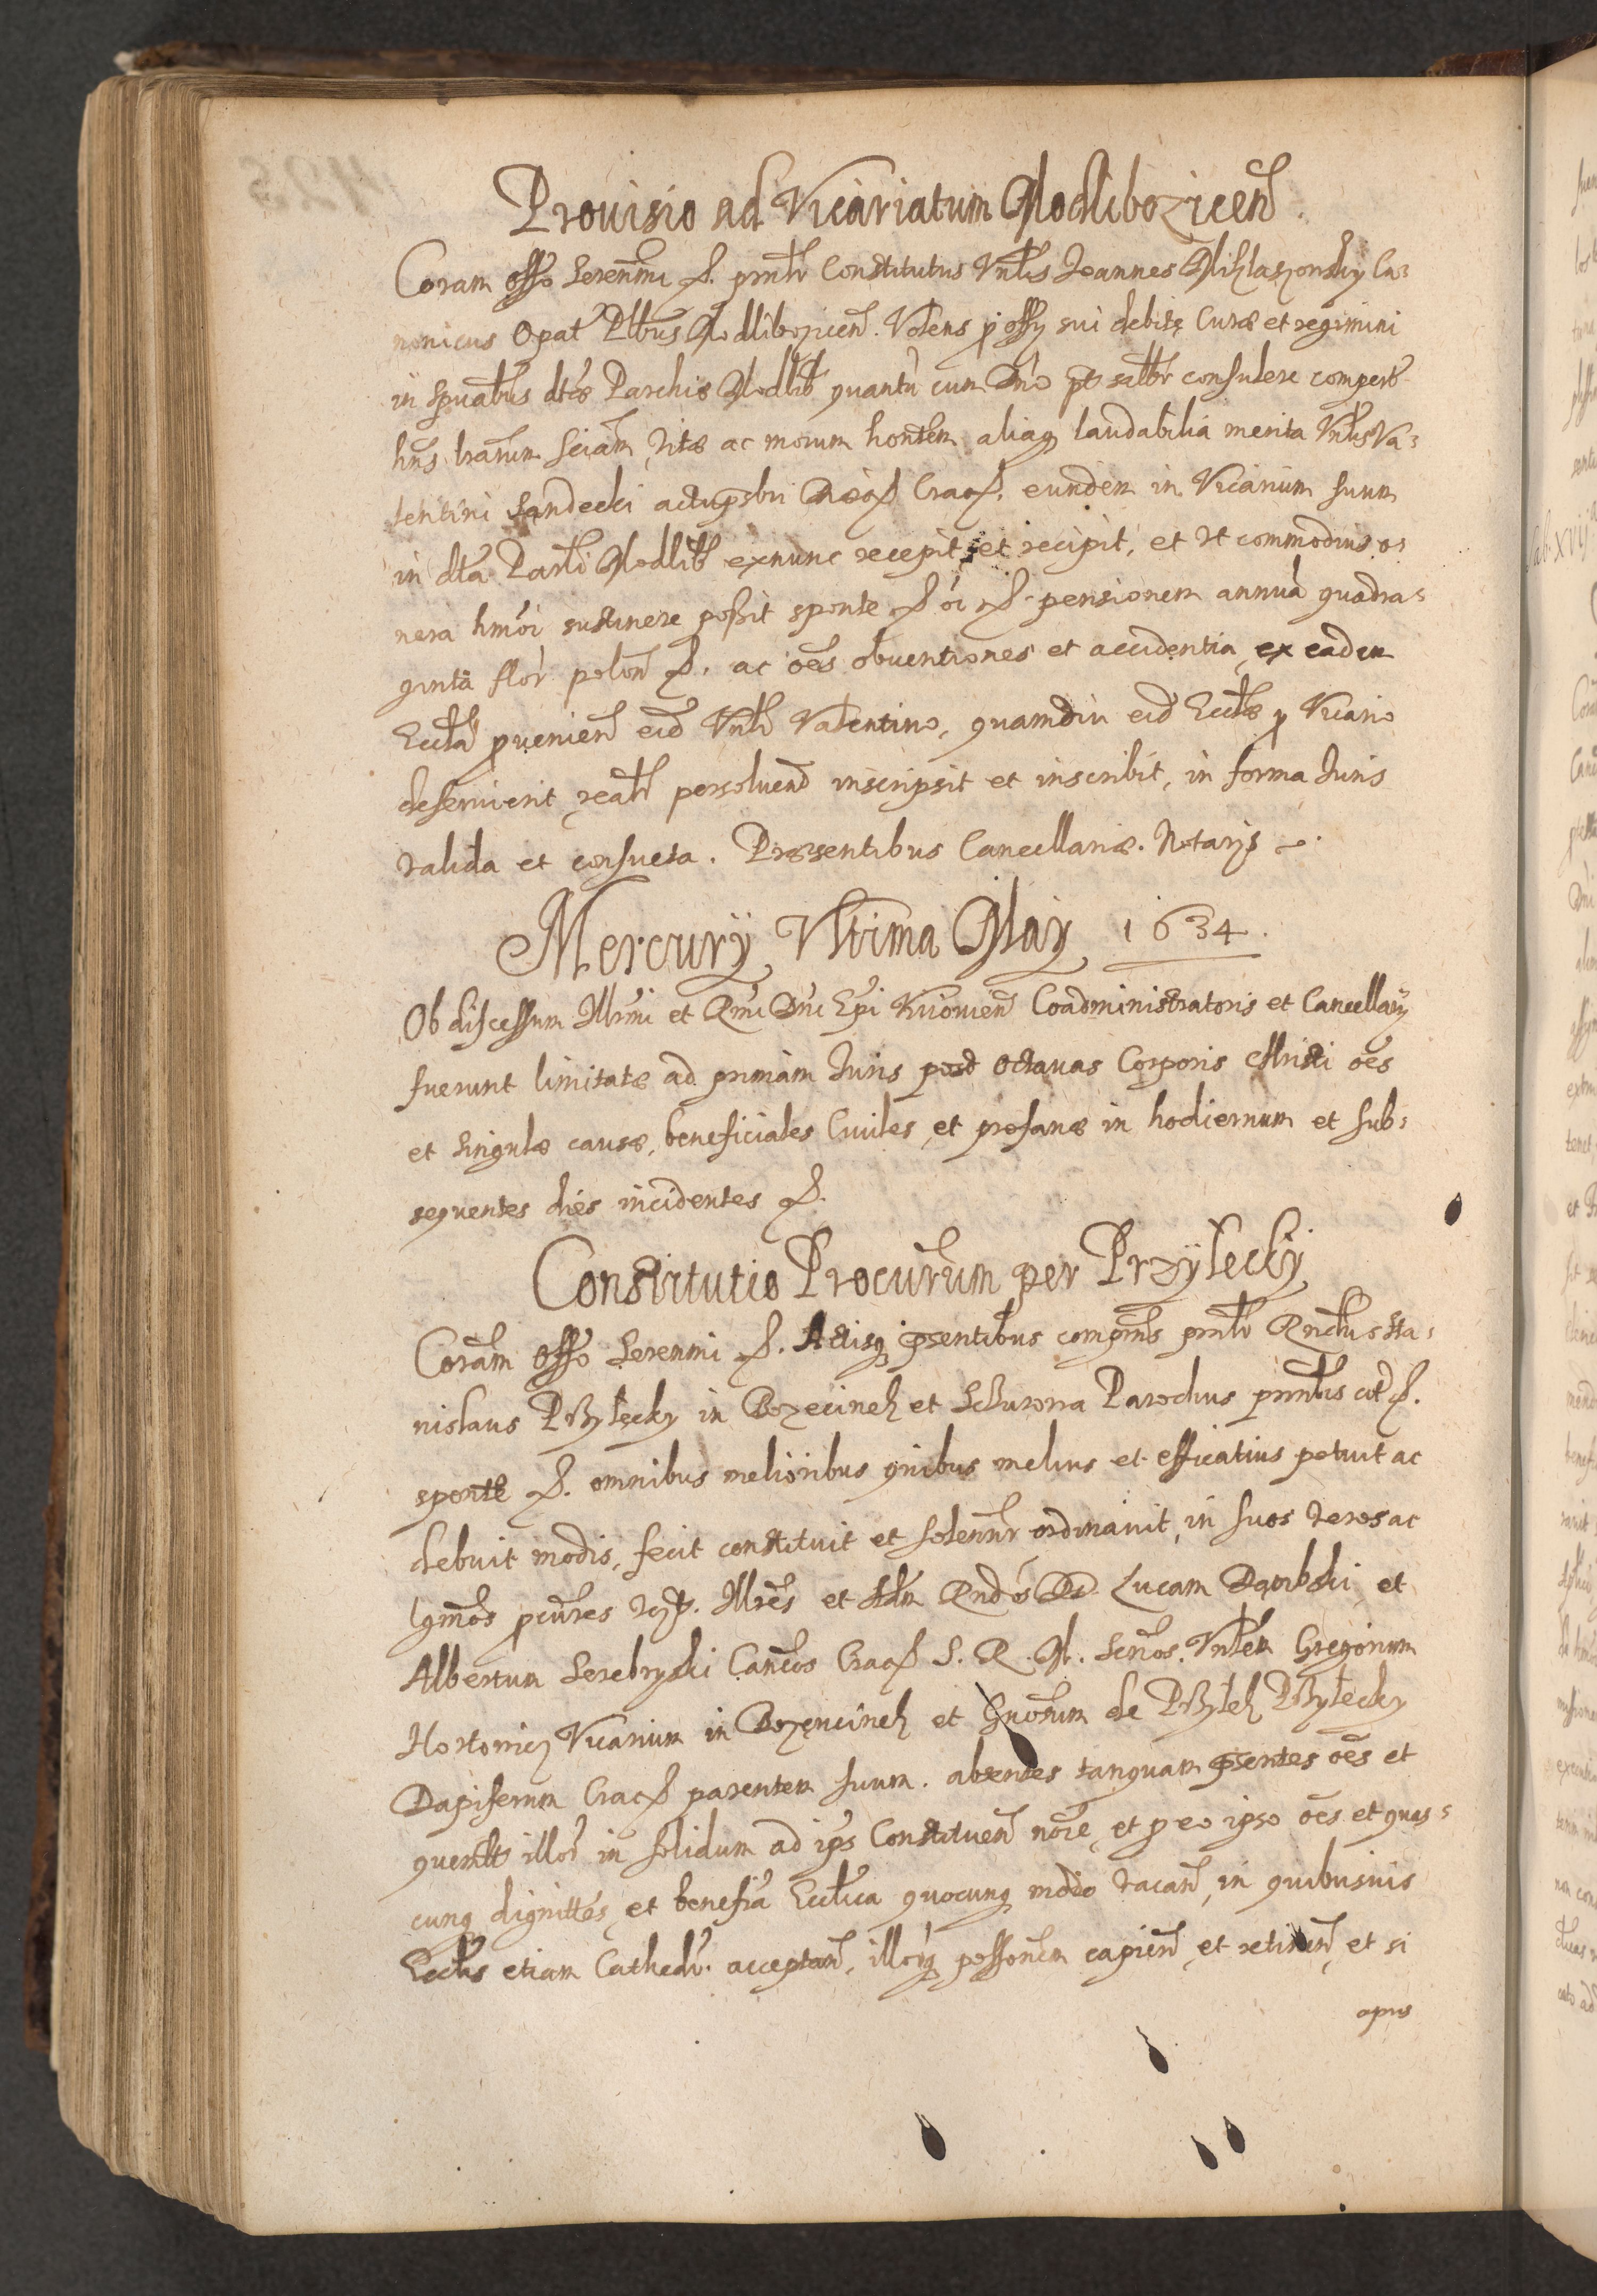 Prouisio ad Vicariatum Modlibozicen̄.
Coram offo Serenmi &. pmtr Constitutus Vnblis Joannes Miklaszowsky Ca-
nonicus Opat Plbus Modlibozicen. Volens p offy sui debite Curæ et regimini
in spualbus dtæ Parchiæ Modlib quantu cum Dno pt salbr consulere compert
hns lrarum sciam, vitæ ac morum hontem aliaq laudabilia merita Vnblis Va-
lentini Sandecki actu psbri Diæc Crac. eundem in Vicarium suum
in dta Parli Modlib exnunc recepit et recipit, et vt commodius o-
nera hmoi sustinere possit sponte & oi &. pensionem annua quadra-
ginta flor polon &. ac oes obuentiones et accidentia, ex eadem
Eccla prouenien eid Vnbli Valentino, quamdiu eid Ecclæ p Vicario
deseruierit, realr persoluend inscripsit et inscribit, in forma Juris
valida et consueta. Præsentibus Cancellariæ. Notarys
Mercurÿ Vltima May 1634.
Ob discessum Illrmi et Rmi Dni Epi Kiiouien Coadministratoris et Cancellarÿ
fuerunt limitatæ ad primam Juris post octauas Corporis Christi oes
et singulæ causæ, beneficiales Ciuiles, et profanæ in hodiernum et sub-
sequentes dies incidentes &.
Constitutio Procurum per Przÿlecky
Coram offo Serenmi &. Actisq psentibus compns pmtr Rndus Sta-
nislaus Przylecky in Bozecineh et Sczurowa Parochus pmtlis cit &.
sponte &. omnibus melioribus quibus melius et efficatius potuit ac
debuit modis, fecit constituit et solennr ordinauit, in suos veros ac
lgmos pcures vz. Illres et Adm Rndos DD Lucam Dąmbski et
Albertum Serebryski Cancos Crac S. R. M. Scrios. Vnblem Gregorium
Hortonicz Vicarium in Bozencineh et Gnorum de Przyleh Przylecky
Dapiferum Crac parentem suum. absentes tanquam psentes oes et
quemlbt illor in solidum ad ips Constituen noie, et p eo ipso oes et quas-
cunq dignittes, et benefia Ecclica quocunq modo vacan, in quibusuis
Ecclis etiam Cathedr. acceptan, illorq possonem capien, et retinen, et si
opus